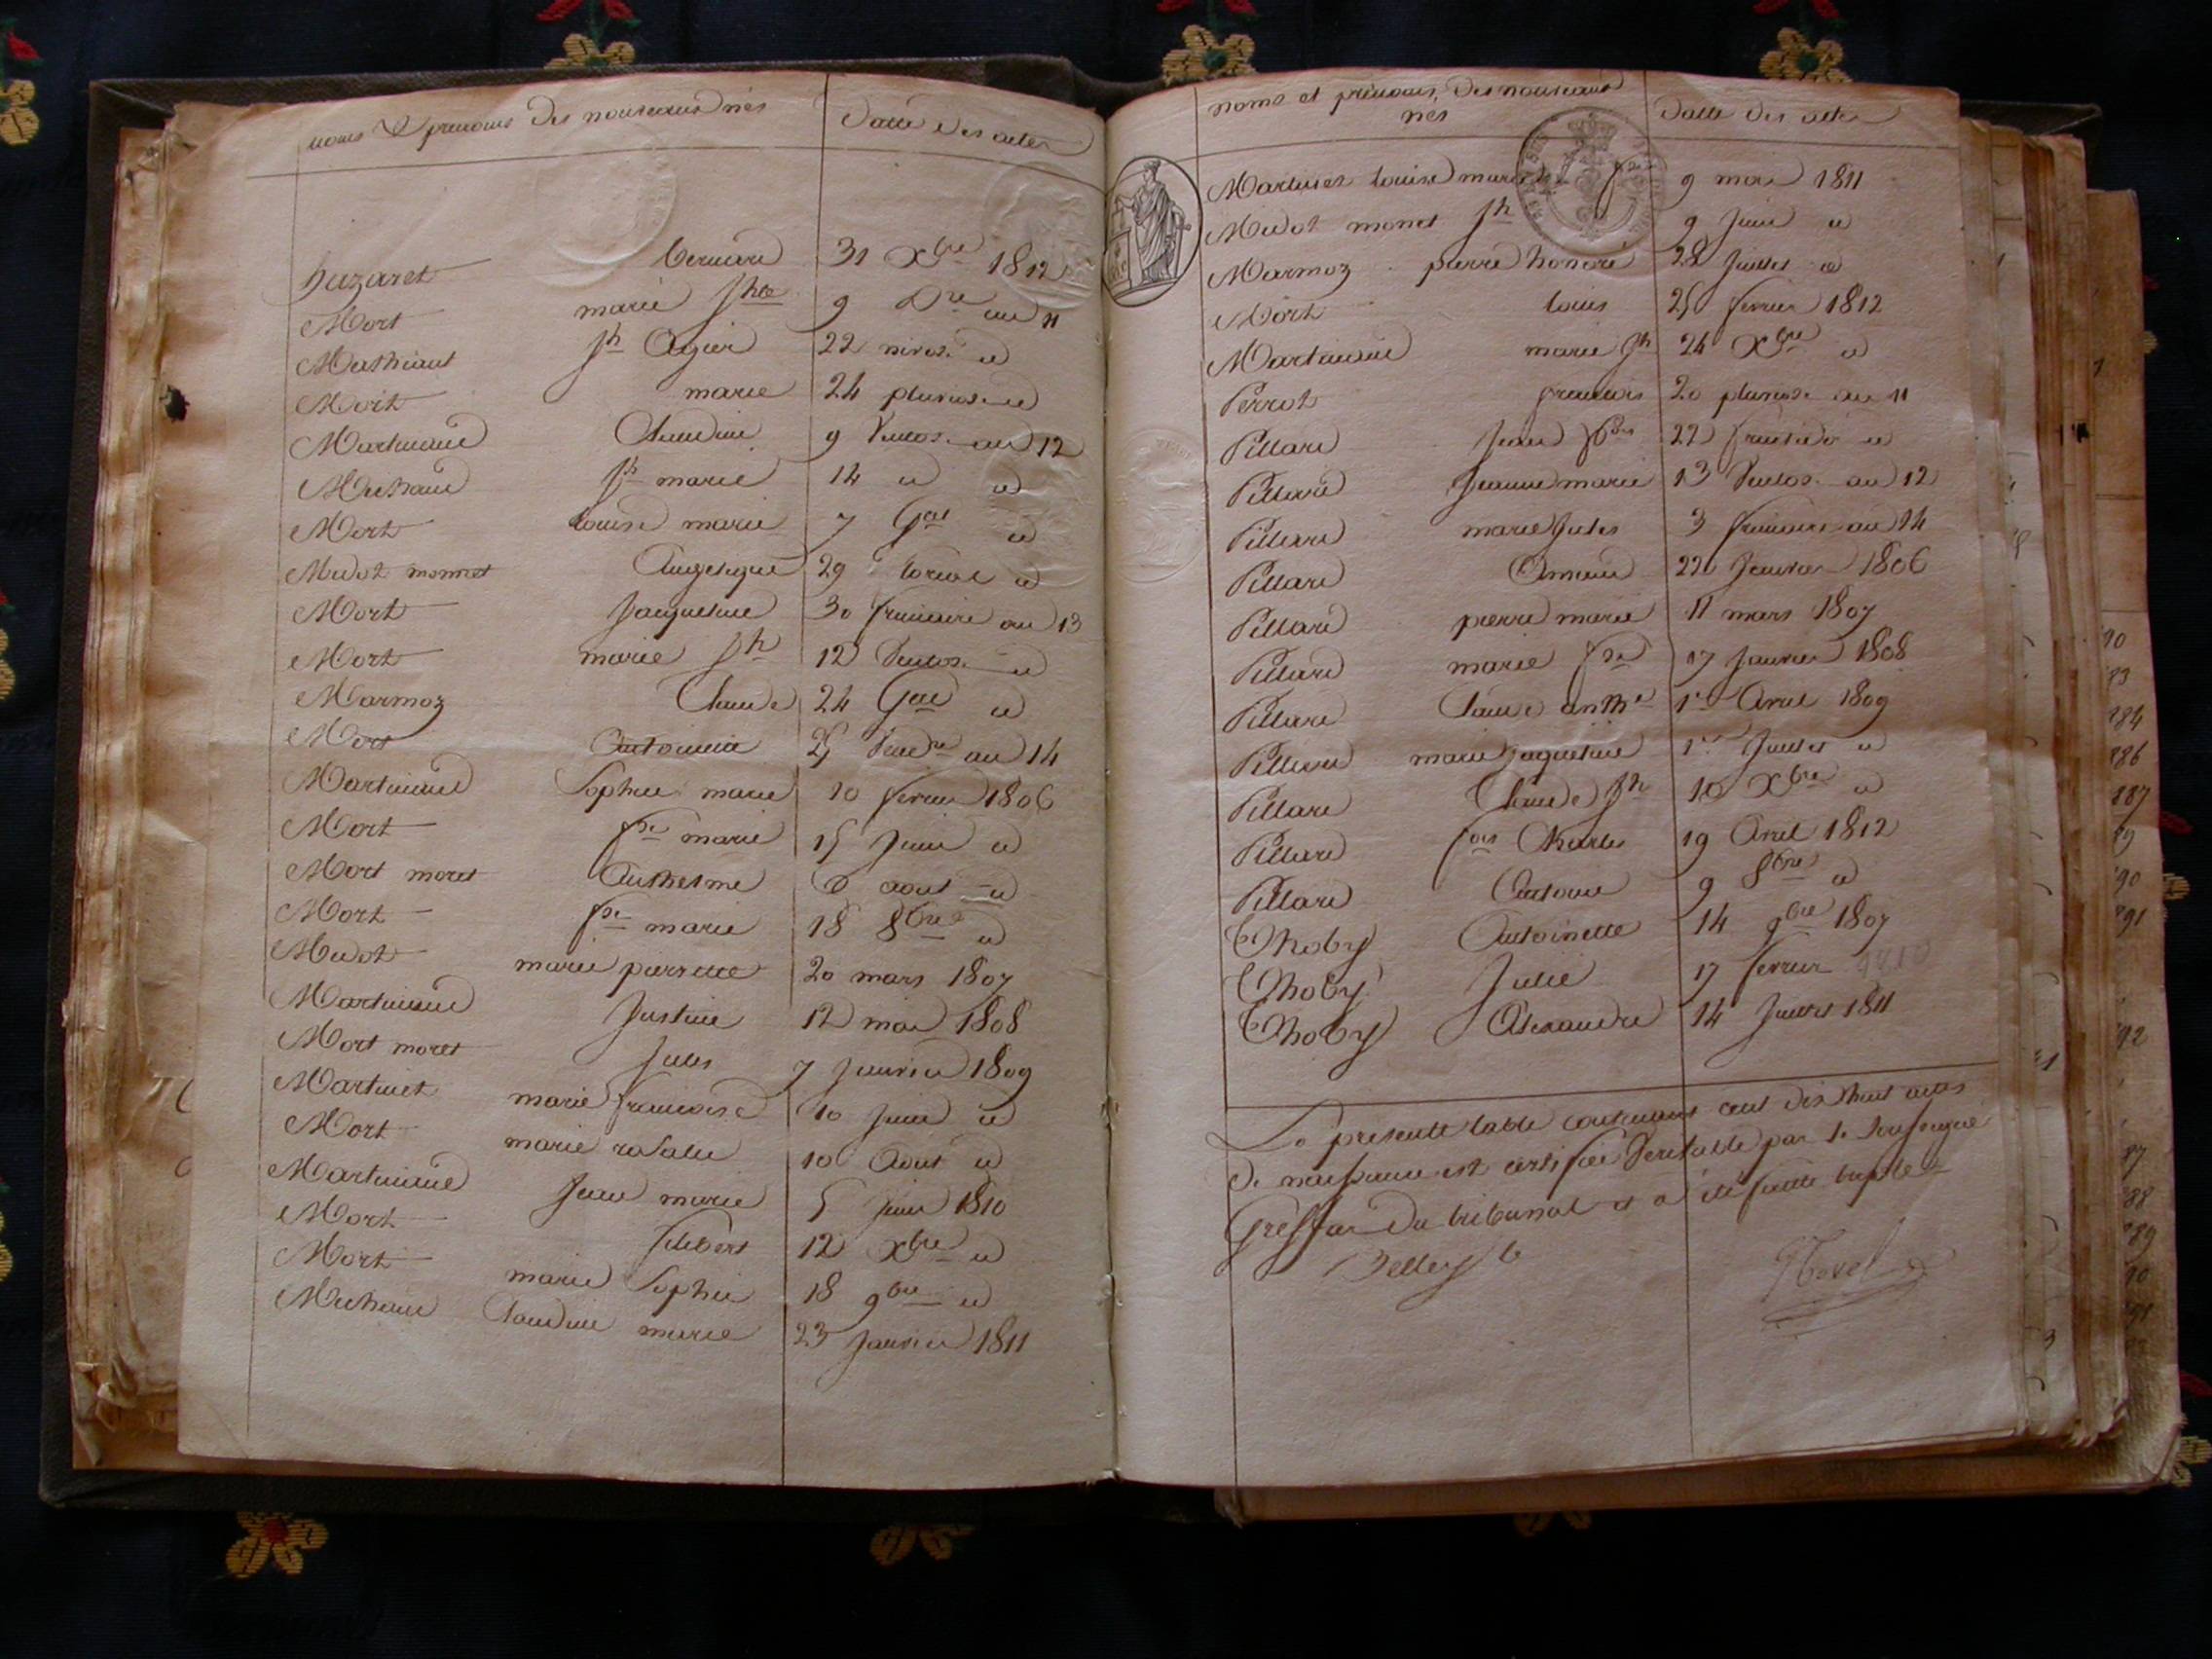 noms & prenoms des nouveaux nés
Datte des actes
hazaret bernard 31 Xbre 1812
Mort marie Jhte 9 an 11
Mathiaut Jh Ogier 22 nivose id
Mort marie 24 pluviose id
Martinand Claudine 9 Ventose an 12
Michaud Jh marie 14 id id
Mort louise marie 7 Gal id
Midot monnet Angelique 29 floreal id
Mort Jaqueline 30 frimaire an 13
Mort marie Jh 12 Ventose id
Marmoz Claude 24 Gal id
Mort Antoinette 25 Vendre an 14
Martinand Sophie marie 10 fevrier 1806
Mort fse marie 15 Juin id
Mort moret Anthelme 6 aout id
Mort fse marie 18 8bre id
Midot marie pierrette 20 mars 1807
Martinand Justine 12 mai 1808
Mort moret Jules 7 Janvier 1809
Martinet marie francoise 10 Juin id
Mort marie rosalie 10 Aout id
Martinand Jean marie 5 Juin 1810
Mort filibert 12 Xbre id
Mort marie Sophie 18 9bre id
Michaud Claudine marie 23 Janvier 1811
noms et prenoms des nouveaux
nés
Datte des actes
Martinet louise marie 9 mai 1811
Midot monet Jh 9 Juin id
Marmoz pierre honoré 28 Juillet id
Mort louis 25 fevrier 1812
Martinand marie Jh 24 Xbre id
Perrot francois 20 pluviose an 11
Pillard Jean 22 fructidor id
Pillard Jeanne marie 13 Ventose an 12
Pillard marie Jules 3 frimaire an 14
Pillard Armand 22 Janvier 1806
Pillard pierre marie 11 mars 1807
Pillard marie fse 17 Janvier 1808
Pillard Claude anthe 1er Avril 1809
Pillard marie Jaqueline 1er Juillet id
Pillard Claude Jh 10 Xbre id
Pillard fois Charles 19 Avril 1812
Pillard Antoine 9 8bre id
Thoby Antoinette 14 9bre 1807
Thoby Julie 17 fevrier 1810
Thoby Alexandre 14 Juillet 1811
La presente table contenant cent dix huit actes
de naissance est certifiée veritable par le soussigné
Greffier du tribunal et a été faitte triple
Belley le